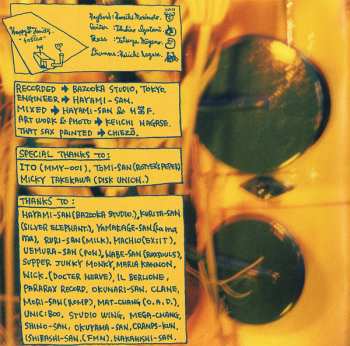 Happy Family
"toscco"
Keyboard: Kenichi Morimoto.
Guitar: Takahiro Izutani
Bass: Tatsuya Miyano.
Drums: Keiichi Nagase.
RECORDED → BAZOOKA STUDIO, TOKYO.
ENGINEER → HAYAMI-SAN.
MIXED → HAYAMI-SAN & H.F.
ART WORK & PHOTO → KEIICHI NAGASE.
THAT SAX PAINTED → CHIEZO.
SPECIAL THANKS TO:
ITO (MMY-001), TOMI-SAN (ROTTER'S PEPER)
MICKY TAKEKAWA (DISK UNION.)
THANKS TO:
HAYAMI-SAN (BAZOOKA STUDIO.), KURITA-SAN
(SILVER ELEPHANT.), YAMAKAGE-SAN (La ma
ma), RURI-SAN (MILK), MACHIO (EXIIT),
UEMURA-SAN (POW), WABE-SAN
SUPPER JUNKY MONKY, MARIA KANNON,
NICK. (DOCTER NERVE), IL BERLIONE,
PARARAX RECORD, OKUNARI-SAN, CLAHE,
MORI-SAN (BUMP), MAT-CHANG (O.A.D.),
UNIC:BOO, STUDIO WING, MEGA-CHANG,
SHINO-SAN, OKUYAMA-SAN, CRAMPS-KUN,
ISHIBASHI-SAN. (FMN), NAKANISHI-SAN.